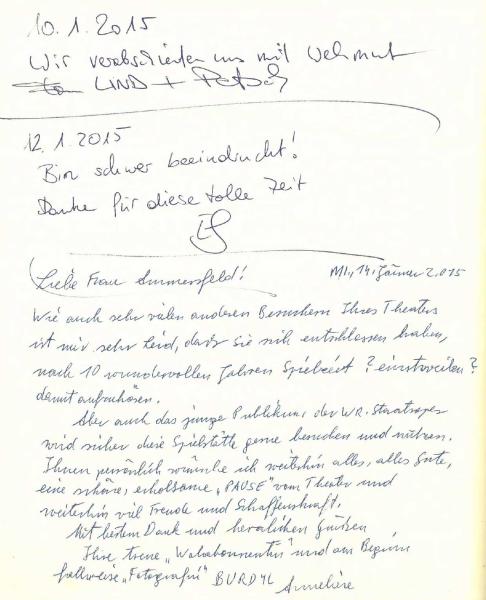 10.1.2015
Wir verabschieden uns mit Wehmut
LIND +
12.1.2015
Bin schwer beeindruckt!
Danke für diese tolle Zeit
Liebe Frau Summersfeld!
MI., 14. Jänner 2015
Wie auch sehr vielen anderen Besuchern Ihres Theaters
ist mir sehr leid, daß Sie sich entschlossen haben,
nach 10 wundervollen Jahren Spielzeit ? einstweilen ?
damit aufzuhören.
Aber auch das junge Publikum der WR. Staatsoper
wird sicher diese Spielstätte gerne besuchen und nützen.
Ihnen persönlich wünsche ich weiterhin alles, alles Gute,
eine schöne, erholsame „PAUSE" vom Theater und
weiterhin viel Freude und Schaffenskraft.
Mit bestem Dank und herzlichen Grüßen
Ihre treue „Wahlabonnentin" und am Beginn
fallweise „Fotografin" BURDYL Anneliese